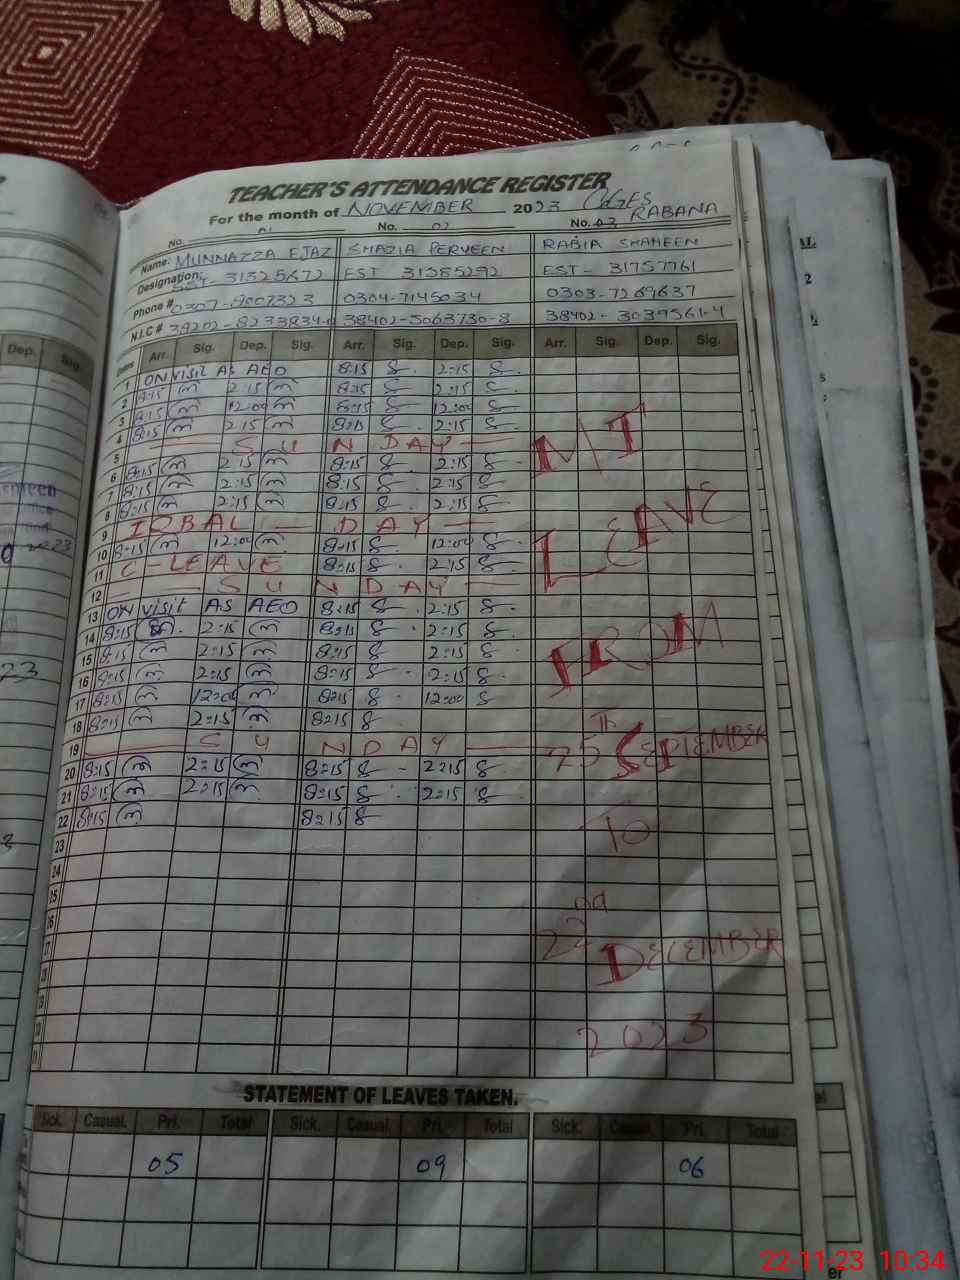 TEACHER'S ATTENDANCE REGISTER
For the month of NOVEMBER 2023
RABANA
No. 01 No. 02 No. 03
Name: MUNNAZZA EJAZ SHAZIA PERVEEN RABIA SHAHEEN
Designation: EST 31385292 EST- 31757761
Phone # 0304-7145034 0303-7269637
N.I.C # 38402-5063730-8 38402-3039561-4
Dates Arr. Sig. Dep. Sig. Arr. Sig. Dep. Sig. Arr. Sig. Dep. Sig.
1 ON visit AS AEO 8:15 2:15
2 8:15 2:15 8:15 2:15
3 8:15 12:00 8:15 12:00
4 8:15 2:15 8:15 2:15
5 SUNDAY
6 8:15 2:15 8:15 2:15
7 8:15 2:15 8:15 2:15
8 8:15 2:15 8:15 2:15
9 IQBAL DAY
10 8:15 12:00 8:15 12:00
11 C-LEAVE 8:15 2:15
12 SUNDAY
13 ON visit AS AEO 8:15 2:15
14 8:15 2:15 8:15 2:15
15 8:15 2:15 8:15 2:15
16 8:15 2:15 8:15 2:15
17 8:15 12:00 8:15 12:00
18 8:15 2:15 8:15
19 SUNDAY
20 8:15 2:15 8:15 2:15
21 8:15 2:15 8:15 2:15
22 8:15 8:15
23
24
25
LEAVE
FROM
25th SEPTEMBER
TO
22nd
DECEMBER
2023
STATEMENT OF LEAVES TAKEN.
Sick. Casual. Pri. Total Sick. Casual. Pri. Total Sick. Casual. Pri. Total
05 09 06
Dep. Sig.
22-11-23 10:34